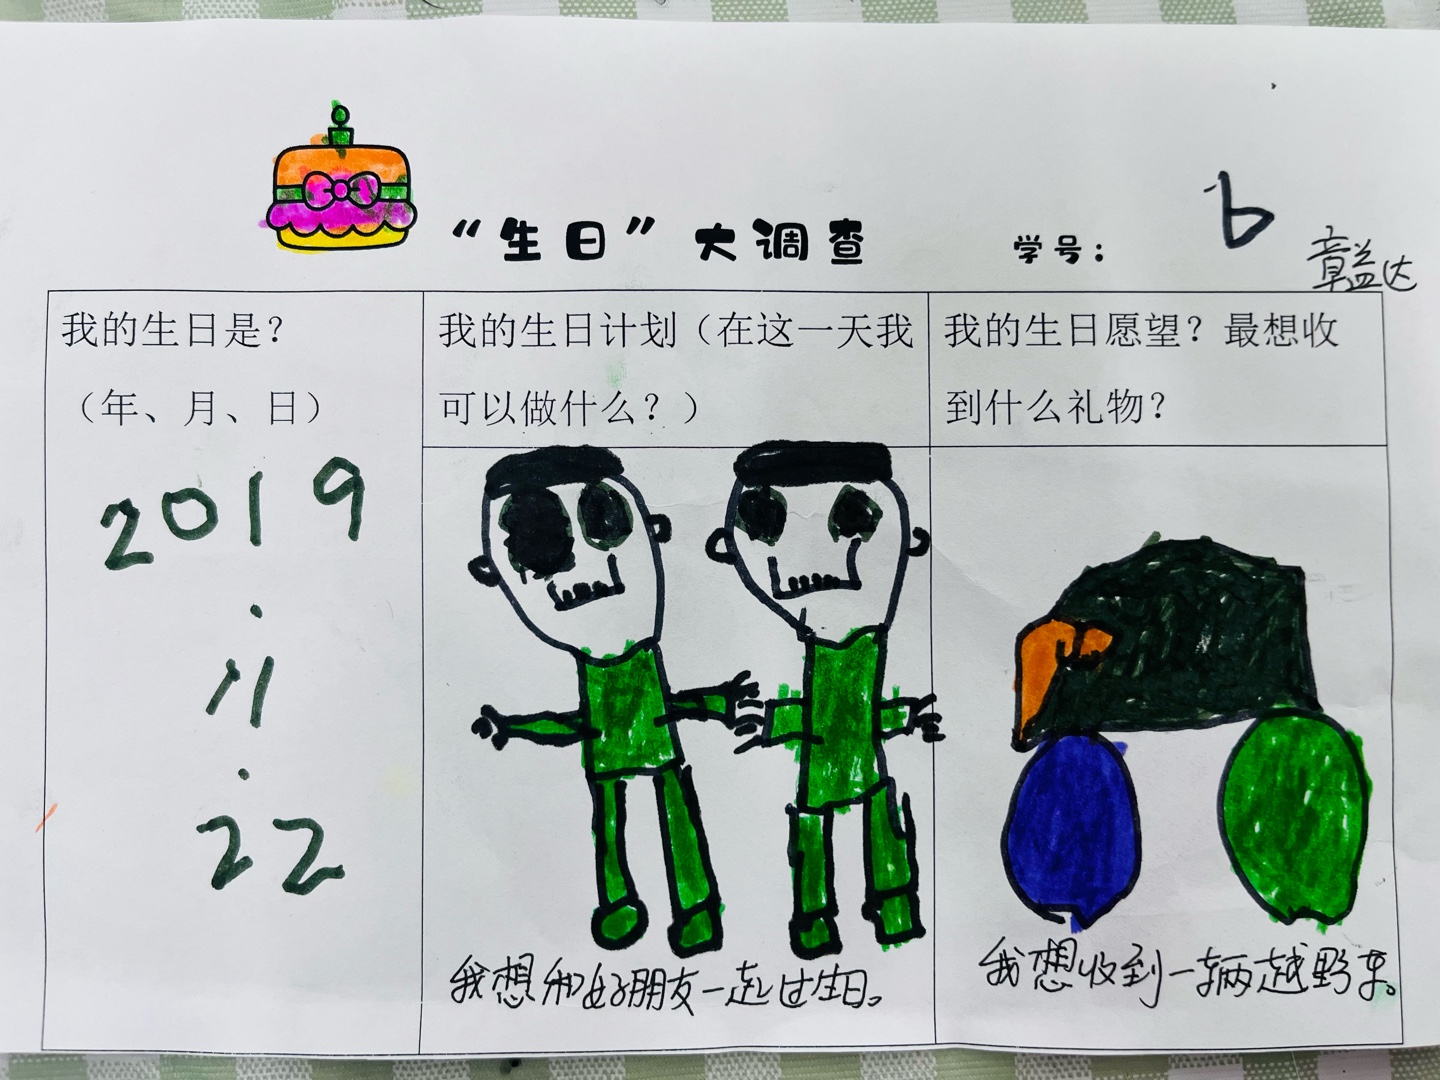 “生日”大调查
学号：
6
章益达
我的生日是？
（年、月、日）
2019
.
11
.
22
我的生日计划（在这一天我
可以做什么？）
我想和好朋友一起过生日。
我的生日愿望？最想收
到什么礼物？
我想收到一辆越野车。